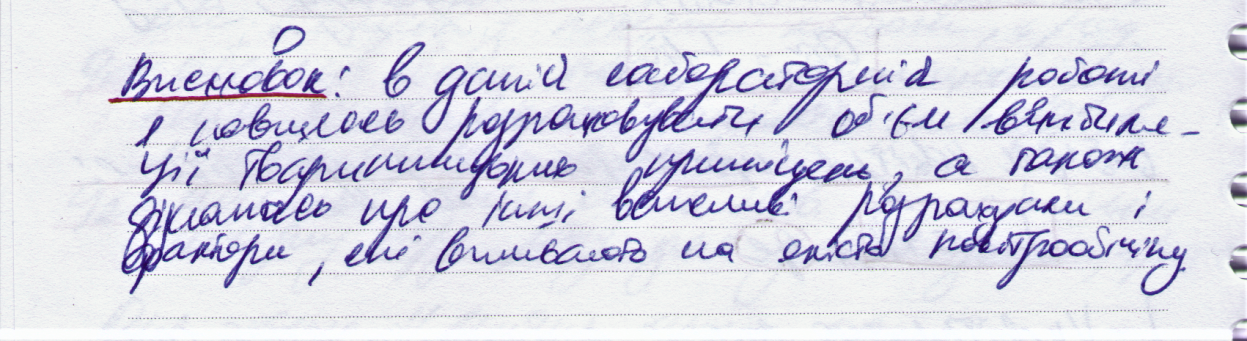 Висновок: в даній лабораторній роботі
я навчилась розраховувати об'єм вентиля-
ції тваринницьких приміщень, а також
дізналась про інші важливі розрахунки і
фактори, які впливають на якість повітрообміну